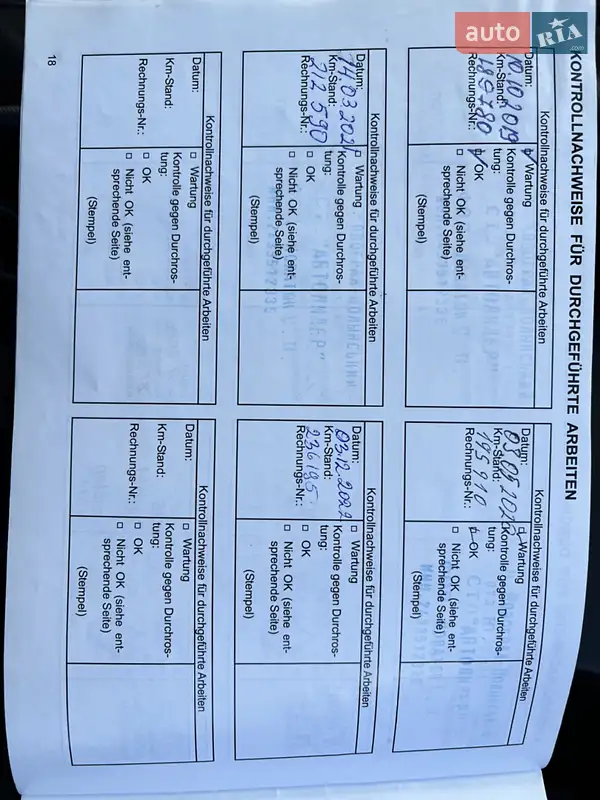 auto RIA .com
KONTROLLNACHWEISE FÜR DURCHGEFÜHRTE ARBEITEN
Kontrollnachweise für durchgeführte Arbeiten
Datum:
10.10 2019
Km-Stand:
189780
Rechnungs-Nr.:
Wartung
Kontrolle gegen Durchros-
tung:
OK
Nicht OK (siehe ent-
sprechende Seite)
(Stempel)
Kontrollnachweise für durchgeführte Arbeiten
Datum:
Km-Stand:
Rechnungs-Nr.:
Wartung
Kontrolle gegen Durchros-
tung:
OK
Nicht OK (siehe ent-
sprechende Seite)
(Stempel)
Kontrollnachweise für durchgeführte Arbeiten
Datum:
14.03.2021
Km-Stand:
212 590
Rechnungs-Nr.:
Wartung
Kontrolle gegen Durchros-
tung:
OK
Nicht OK (siehe ent-
sprechende Seite)
(Stempel)
Kontrollnachweise für durchgeführte Arbeiten
Datum:
03.12.2022
Km-Stand:
236195
Rechnungs-Nr.:
Wartung
Kontrolle gegen Durchros-
tung:
OK
Nicht OK (siehe ent-
sprechende Seite)
(Stempel)
Kontrollnachweise für durchgeführte Arbeiten
Datum:
Km-Stand:
Rechnungs-Nr.:
Wartung
Kontrolle gegen Durchros-
tung:
OK
Nicht OK (siehe ent-
sprechende Seite)
(Stempel)
Kontrollnachweise für durchgeführte Arbeiten
Datum:
Km-Stand:
Rechnungs-Nr.:
Wartung
Kontrolle gegen Durchros-
tung:
OK
Nicht OK (siehe ent-
sprechende Seite)
(Stempel)
18